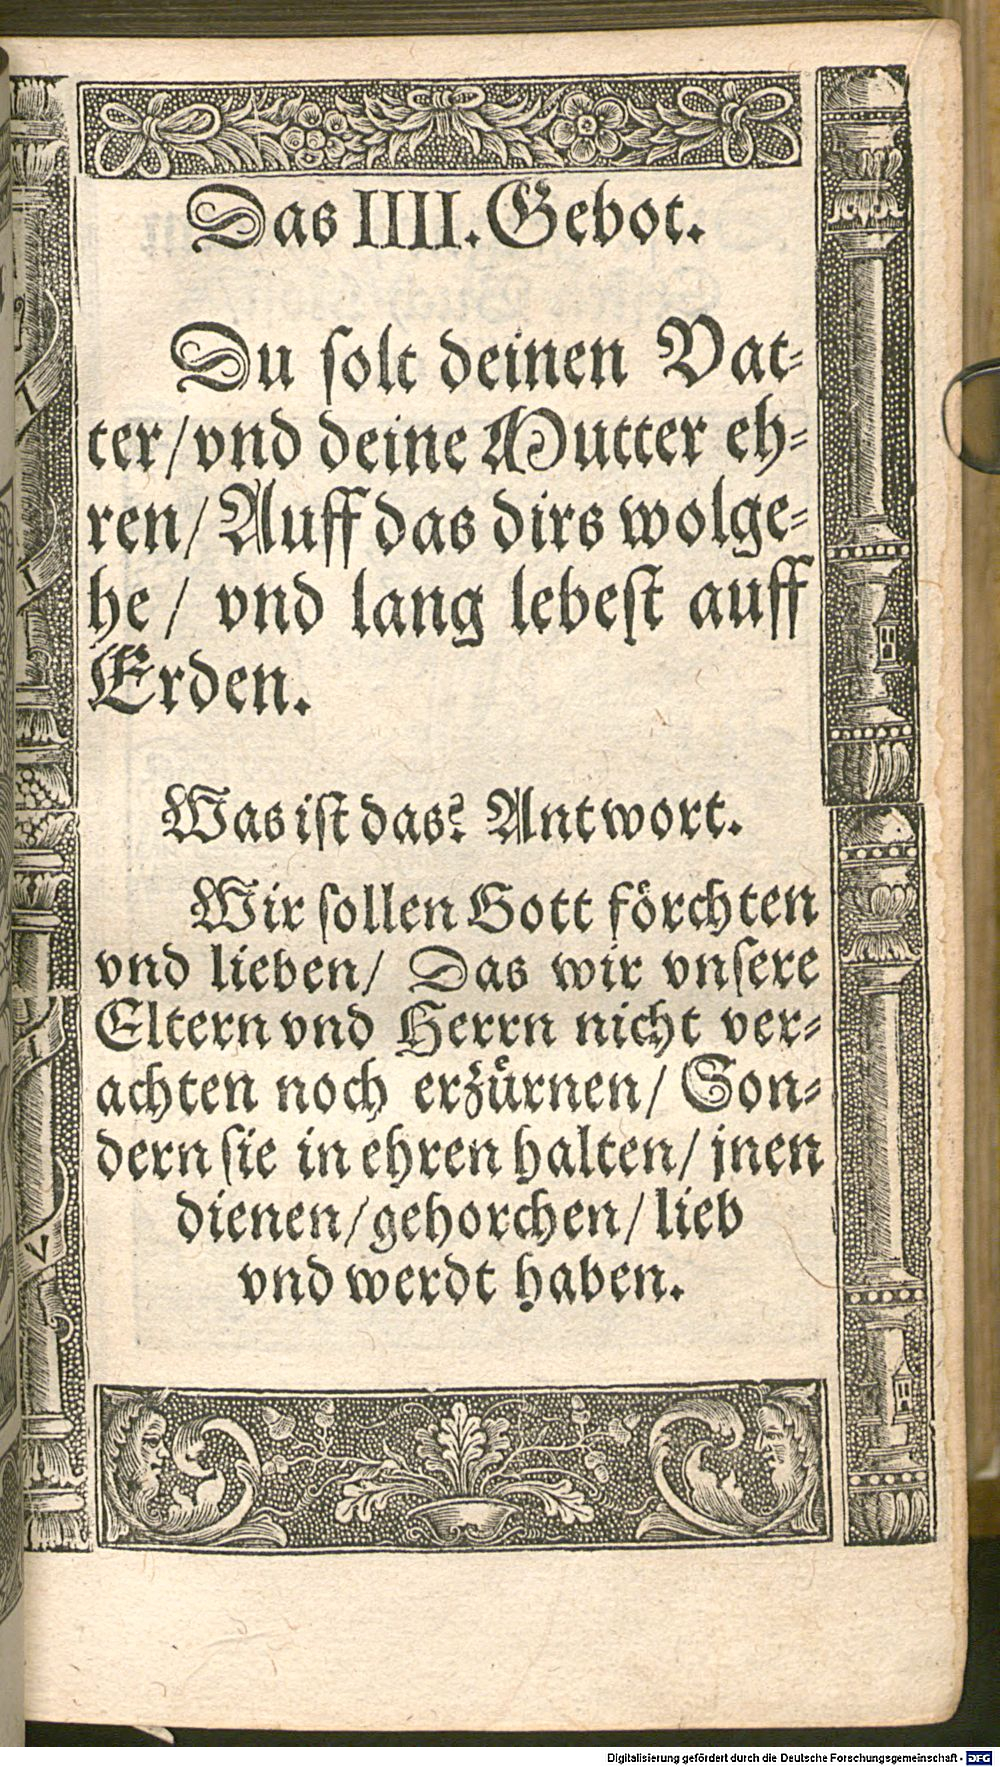 Das IIII. Gebot.
Du ſolt deinen Vat-
ter/ vnd deine Mutter eh-
ren/ Auff das dirs wolge-
he/ vnd lang lebeſt auff
Erden.
Was iſt das? Antwort.
Wir ſollen Gott förchten
vnd lieben/ Das wir vnſere
Eltern vnd Herrn nicht ver-
achten noch erzürnen/ Son-
dern ſie in ehren halten/ jnen
dienen/ gehorchen/ lieb
vnd werdt haben.
Digitalisierung gefördert durch die Deutsche Forschungsgemeinschaft - DFG